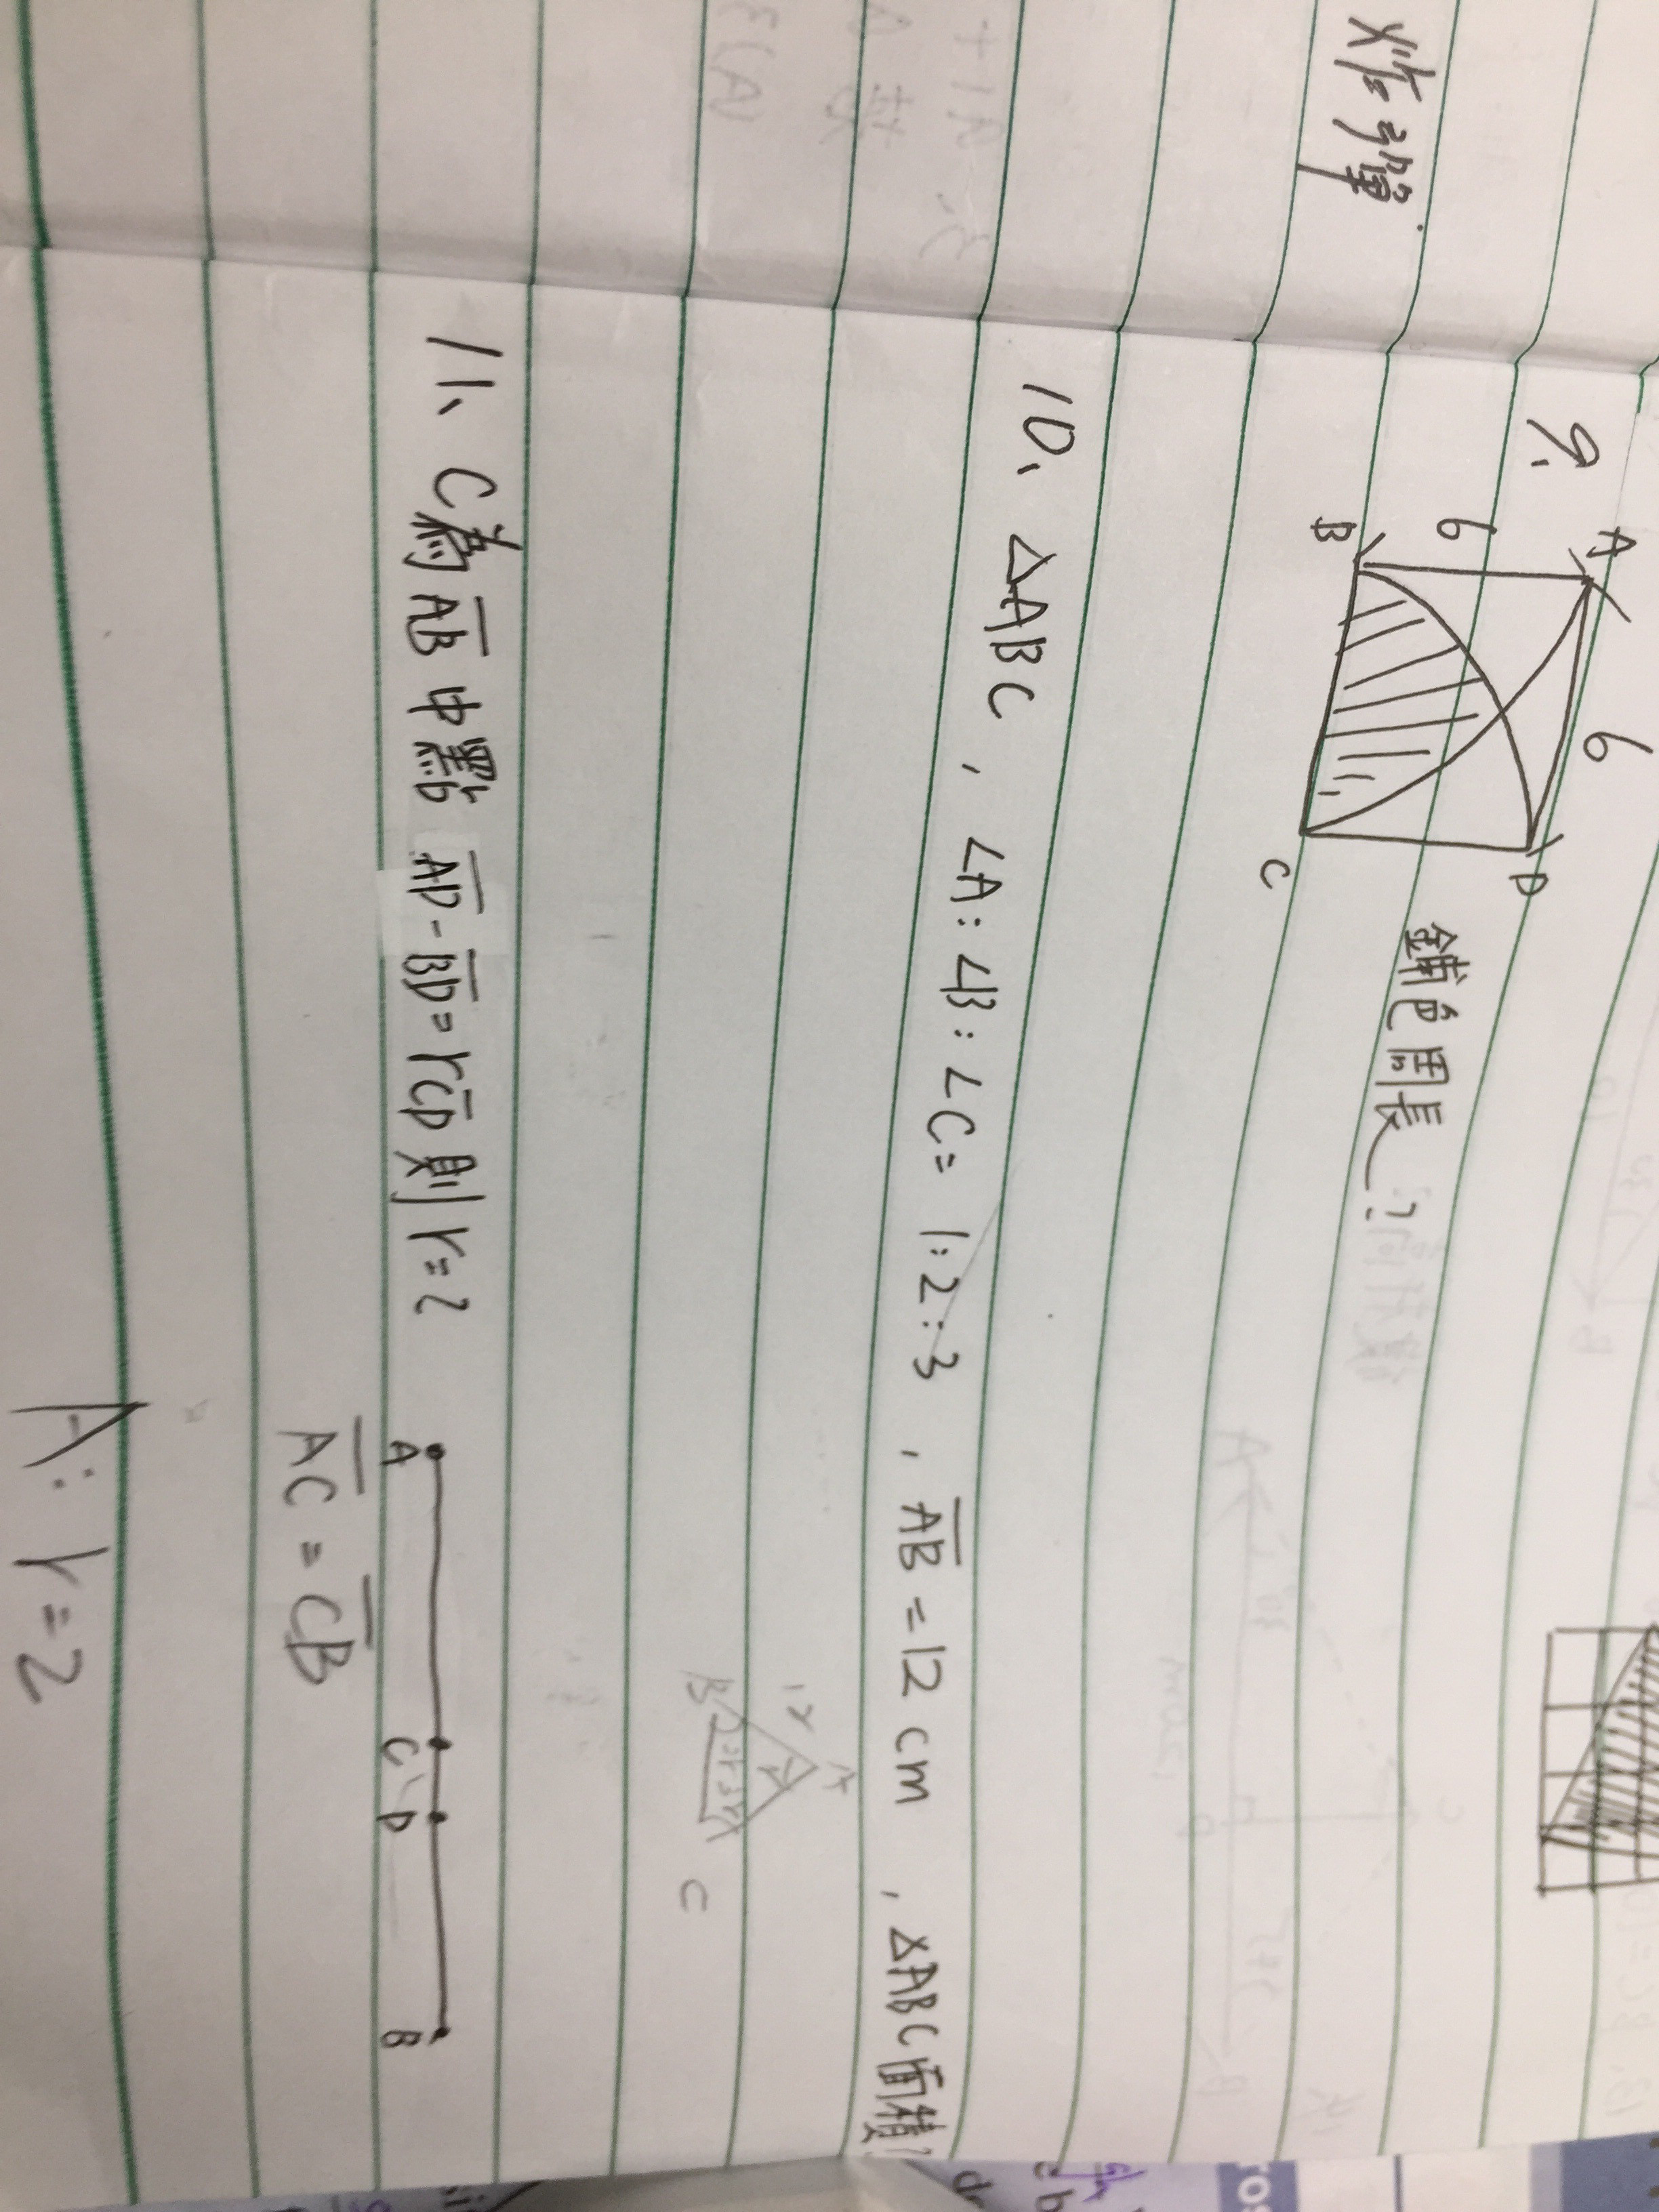 炸彈
9、
A
6
6
B
D
C
鋪色周長?
10、△ABC , ∠A:∠B:∠C= 1:2:3 , AB=12cm , △ABC面積?
A
12
B
C
11、C為AB中點 AD-BD=rCD則r=?
A C D B
AC = CB
A: r=2